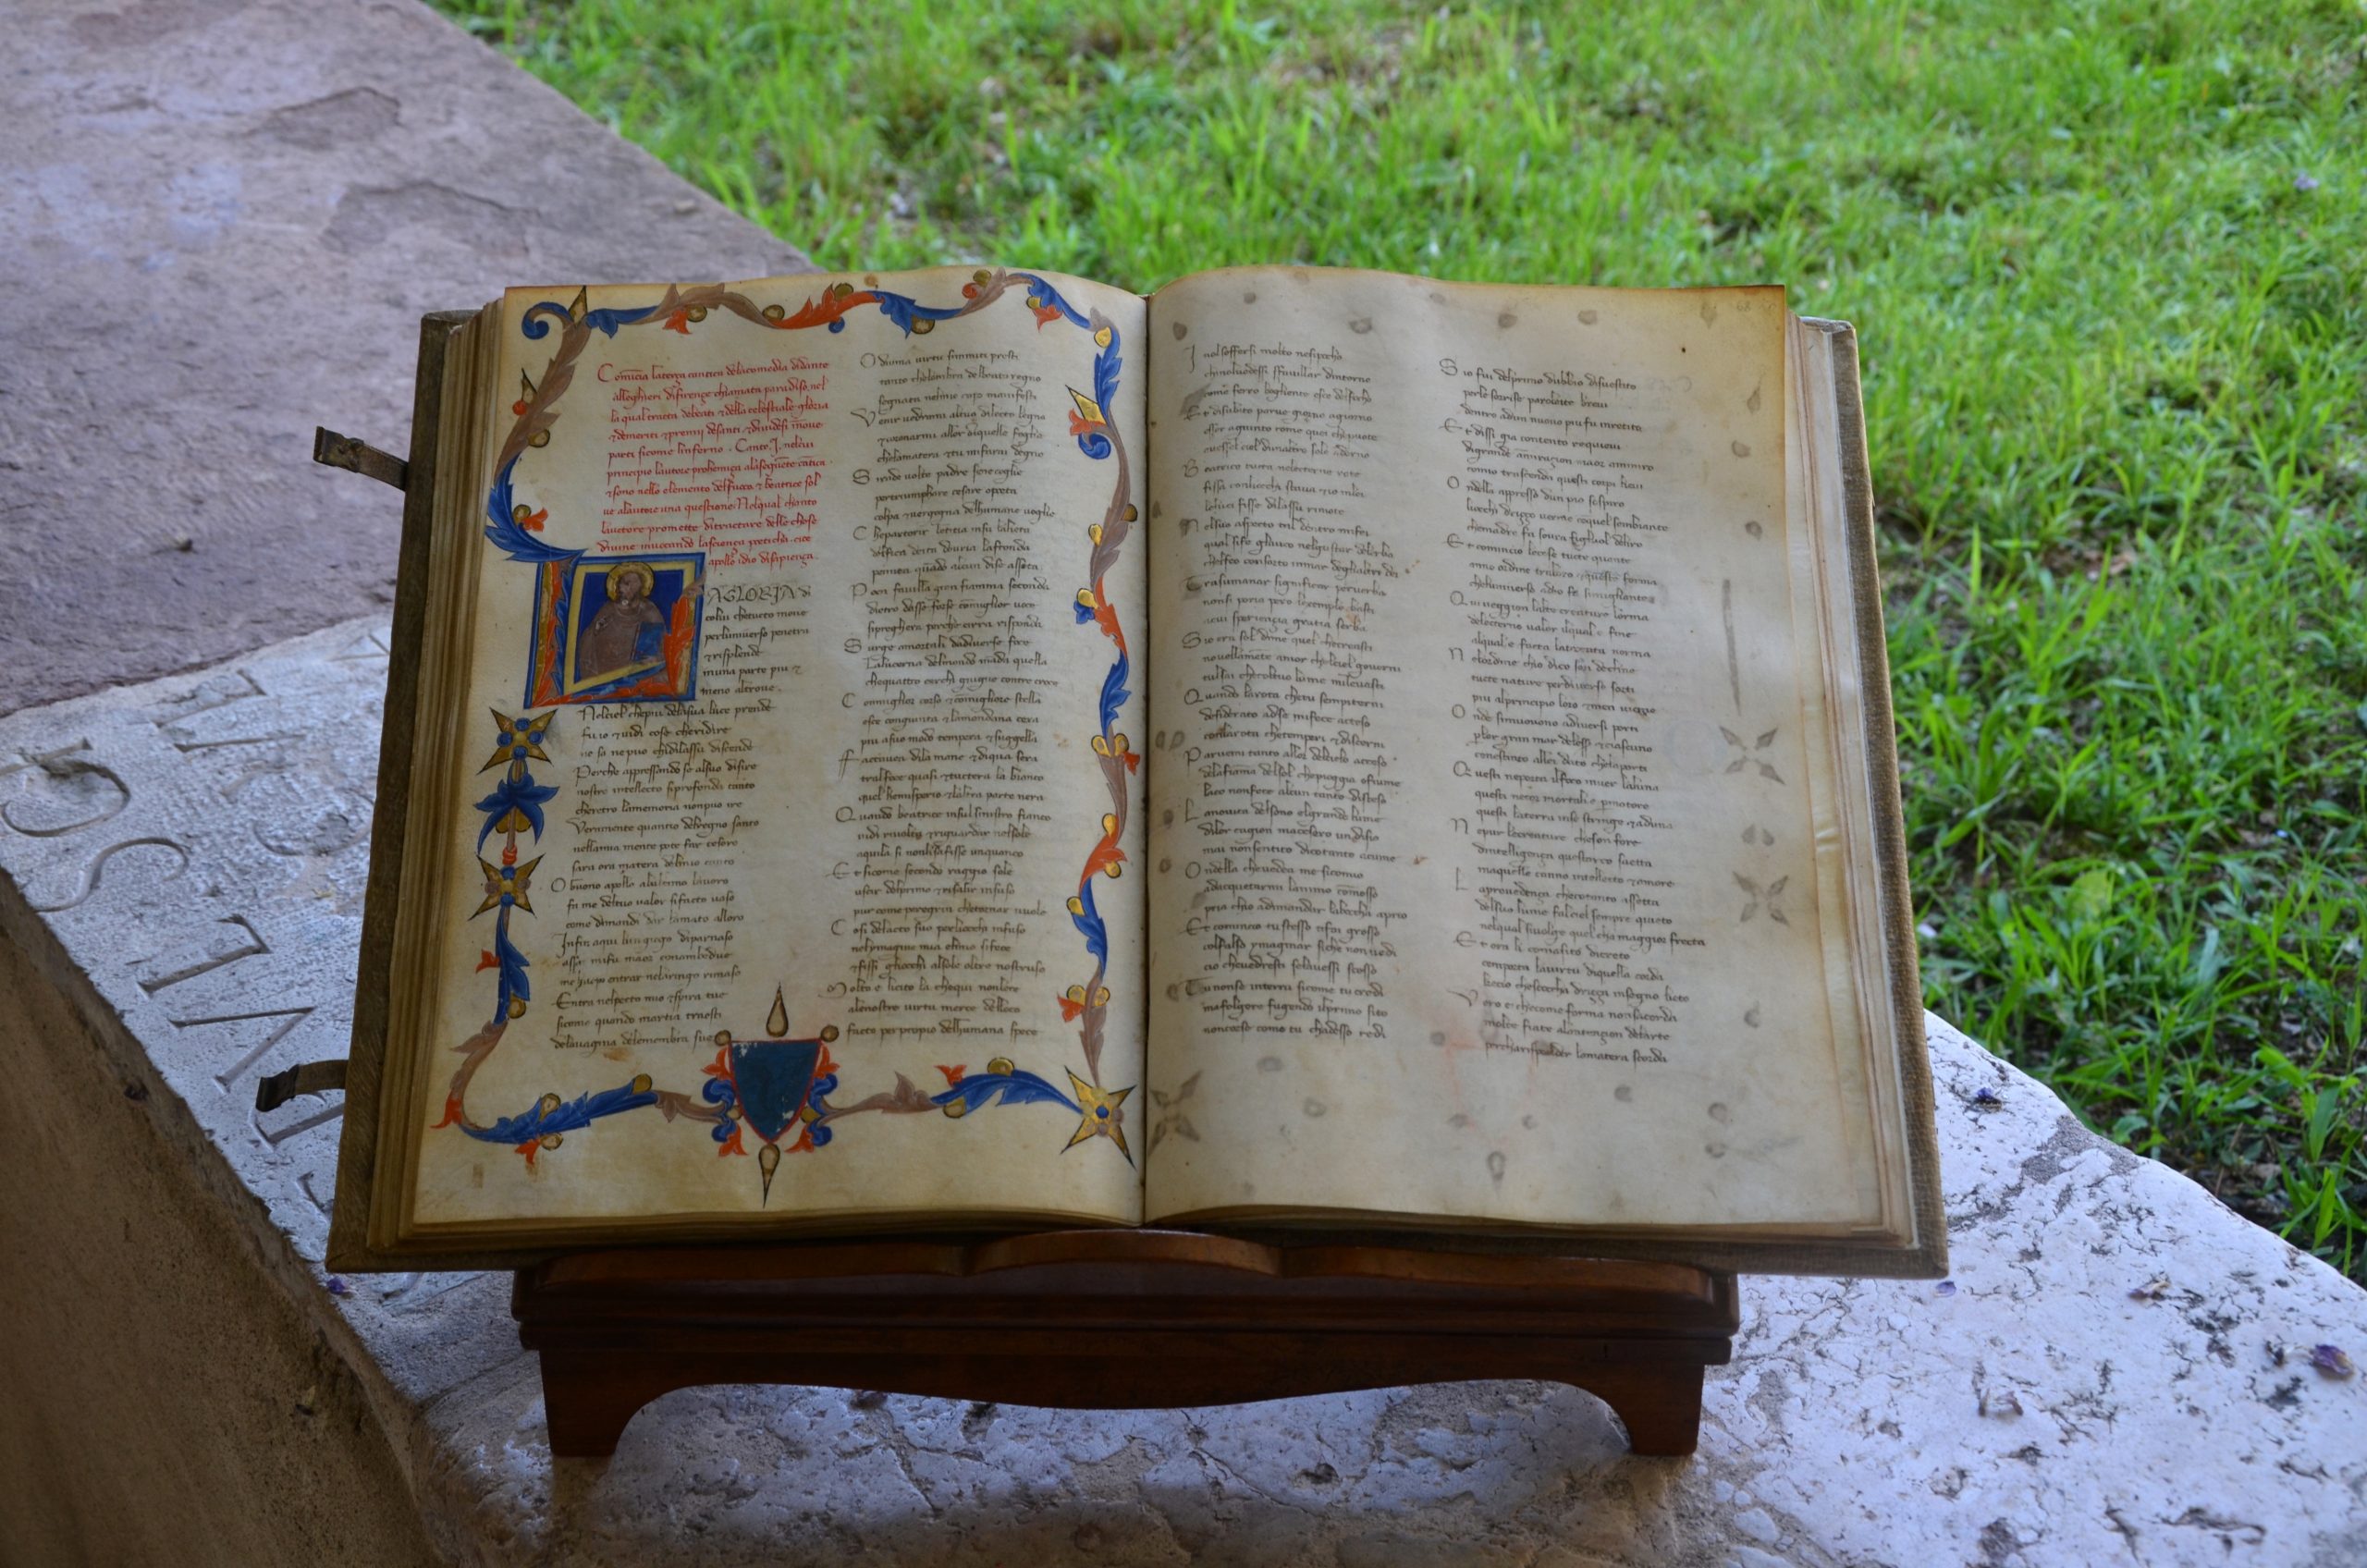 Comīcia laterça cantica delacomedia didante
alleghieri difirençe chiamata paradiso nel
la qual tracta debeati & della celestiale gloria
& demeriti & premii desanti & diuidesi ī noue
parti sicome linferno . Canto J. nelcui
principio lautore prohemiça alasequēte cātica
& sono nello elemento delfuoco & beatrice sol
ue alautore una questione. Nelqual chanto
lautore promette ditractare delle chose
diuine inuocando lasciença poeticha. cioe
apollo idio disapiença.
LAGLORIA di
colui chetucto moue
perluniuerso penetra
& risplende
inuna parte piu &
meno altroue.
Nelciel chepiu delasua luce prende
fu io & uidi cose cheridire
ne sa ne puo chidilassu discende
Perche appressando se alsuo disire
nostro intellecto siprofonda tanto
cheretro lamemoria nonpuo ire
Veramente quantio delregno santo
nellamia mente pote far tesoro
sara ora matera delmio canto
O buono apollo alultimo lauoro
fa me deltuo ualor sifacto uaso
come dimandi dar lamato alloro
Infin aqui lun giogo diparnaso
assai mi fu maor conambedue
me huopo entrar nelaringo rimaso
Entra nelpecto mio & spira tue
sicome quando marsia traesti
delauagina delemembra sue
O diuina uirtu simmiti presti
tanto chelombra delbeato regno
segnata nelmio capo manifesti
Venir uedrami altuo dilecto legno
& coronarmi allor diquelle foglie
chelamatera & tu mifarai degno
S irade uolte padre sene coglie
pertriumphare cesare opoeta
colpa & uergogna delhumane uoglie
C hepartorir letitia insu lalieta
delfica deita douria lafronda
peneia quādo alcun dise asseta
P oca fauilla gran fiamma seconda
dietro dame forse cōmiglior uoce
sipreghera perche cirra risponda
S urge amortali dadiuerse foce
Lalucerna delmondo mada quella
chequattro cerchi giugne contre croce
C onmiglior corso & cōmigliore stella
esce congiunta & lamondana cera
piu asuo modo tempera & suggella
F acteauea dila mane & diqua sera
tralfoce quasi & tuctera la bianco
quel hemisperio & laltra parte nera
Quando beatrice insul sinistro fianco
uidi riuolta & riguardar nelsole
aquila si nonlisafisse unquanco
E & sicome secondo raggio sole
uscir delprimo & risalir insuso
pur come peregrin chetornar uuole
C osi delacto suo perliocchi infuso
nelymagine mia elmio sifece
& fissi gliocchi alsole oltre nostruso
Molto e licito la chequi nonlece
alenostre uirtu merce delloco
facto perpropio delhumana spece
I nolsoffersi molto nesipocho
chinoluedessi sfauillar dintorno
come ferro bogliente esce delfocho
E & disubito parue giorno agiorno
esser agiunto come quei chepuote
auessel ciel dunaltro sole adorno
B eatrice tucta nelecterne rote
fissa conliocchi staua & io inlei
leluci fisse dilassu rimote
N elsuo aspecto tal dentro mifei
qual sife glauco nelgustar delerba
chelfeo consorto inmar deglialtri dei
T rasumanar significar peruerba
nonsi poria pero lexemplo basti
acui sperienza gratia serba
S io era sol dime quel checreasti
nouellamēte amor chelciel gouerni
tulsai checoltuo lume mileuasti
Quando larota chetu sempiterni
desiderato adse mifece acteso
conlarmonia chetemperi & discerni
Paruemi tanto allor delcielo acceso
delafiāma delsol chepioggia ofiume
laco nonfece alcun tanto disteso
L anouita delsono elgrande lume
dilor cagion macesero un disio
mai nonsentito dicotanto acume
O ndella cheuedea me sicomio
adacquetarmi lanimo cōmosso
pria chio adimandar labocha aprio
E & comincio tustesso tifai grosso
colfalso ymaginar siche nonuedi
cio cheuedresti selauessi scosso
Tu nonse interra sicome tu credi
mafolgore fugendo ilprimo sito
noncorse come tu chadesso redi
S io fui delprimo dubbio disuestito
perle sorrise parolecte breui
dentro adun nuouo piu fu inretito
E & dissi gia contento requieui
digrande amiraçion maor ammiro
comio trascenda questi corpi lieui
O ndella appresso dun pio sospiro
liocchi driçço uerme conquel sembiante
chemadre fa soura figliuol deliro
E & comincio lecose tucte quante
anno ordine tralloro & questo e forma
cheluniuerso adio fa simigliante
Qui ueggion lalte creature lorma
delecterno ualor ilqual e fine
alqual e facta latoccata norma
N elordine chio dico son decline
tucte nature perdiuerse sorti
piu alprincipio loro & men uicine
O nde simuouono adiuersi porti
perlo gran mar delessr & ciascuna
conestincto allei dato chelaporti
Q uesti neporta ilfoco inuer laluna
questi necor mortali e permotore
questi laterra inse stringe & aduna
N epur lecreature cheson fore
dintelligença questarco saetta
maquelle channo intellecto & amore
L aprouedença checotanto assetta
delsuo lume fa lciel sempre quieto
nelqual siuolge quel cha maggior frecta
E & ora li comasito decreto
cenporta lauirtu diquella corda
checcio chescocca driçça insegno lieto
Vero e checome forma nonsacorda
molte fiate alantençion delarte
percharisponder lamatera e sorda